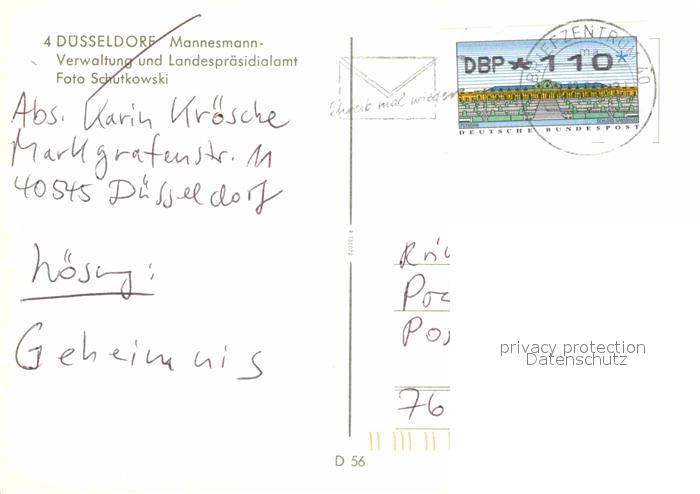 4 DÜSSELDORF Mannesmann-
Verwaltung und Landespräsidialamt
Foto Schutkowski
Abs. Karin Krösche
Markgrafenstr. 11
40545 Düsseldorf
Lösung:
Geheimnis
Schreib mal wieder
DBP * 110 *
DEUTSCHE BUNDESPOST
BRIEFZENTRUM 40
Pos
76
privacy protection
Datenschutz
D 56